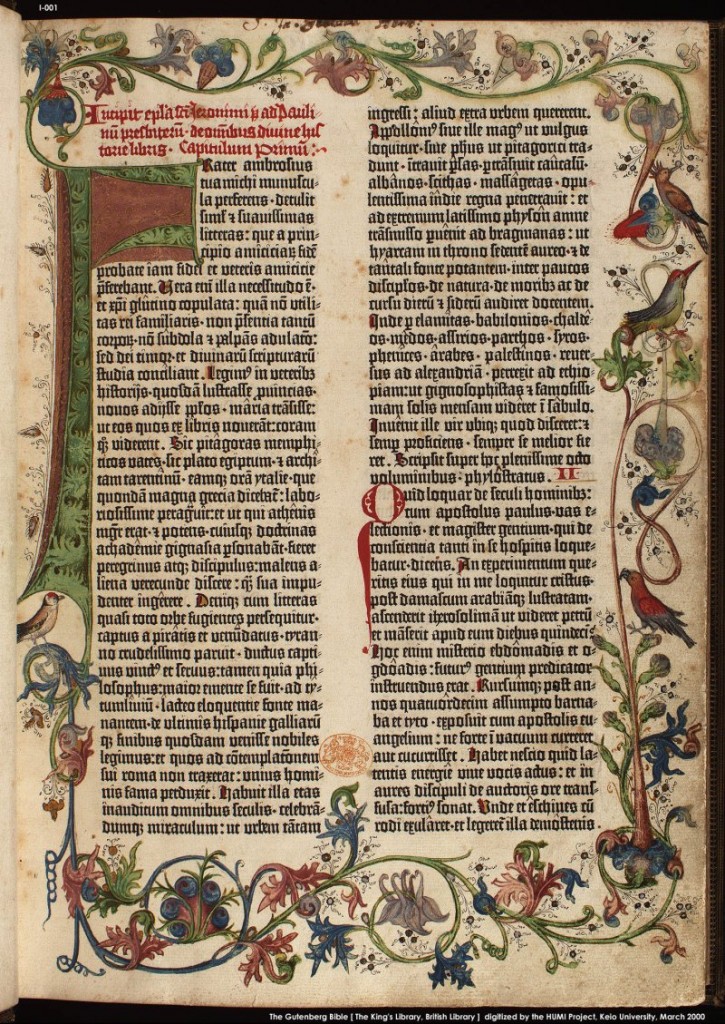 I-001
Incipit epla sti Jeronimi p ad Pauli-
nū presbiterū · de omibus divine his-
torie libris · Capitulum Primū :·
Frater ambrosius
tua michi munuscu-
la perferens · detulit
siml' et suavissimas
litteras : que a prin-
cipio amiciciar fidē
probate iam fidei et veteris amicicie
pferebant. Vera enī illa necessitudo ē-
et xpi glutino copulata : quam nō utili-
tas rei familiaris · non psentia tantū
corpor · nō subdola et palpās adulatō:
sed dei timor · et divinarū scripturarū
studia conciliant. Legimus in veteribz
historijs · quosdā lustrasse provincias ·
novos adijsse pplos · maria trāsisse:
ut eos quos ex libris noverāt : coram
qz viderent. Sic pitagoras memphi-
ticos vates · sic plato egiptum · et archi-
tam tarentinū · eamqz orā ytalie · que
quondā magna grecia dicebat : labo-
riosissime peragrāvit : et ut qui athenis
mgr erat · et potens · cuiusqz doctrinas
achademie gignasia psonabāt · fieret
peregrinus atqz discipulus : malens a-
liena verecunde discere : qz sua impu-
denter ingērere. Deniqz cum litteras
quasi toto orbe fugientes persequitur
captus a pirātis et venūdatus · tyran-
no crudelissimo paruit · ductus capti-
vus vinctus et servus : tamen quia phi-
losophus : maior emente se fuit · ad ty-
tumliviū · lacteo eloquentie fonte ma-
nantem · de ultimis hispanie galliarū
qz finibus quosdam venisse nobiles
legimus : et quos ad cōtemplatōnem
sui roma non traxerat : unius homi-
nis fama perduxit. Habuit illa etas
inauditum omnibus seculis · celebrā-
dumqz miraculum : ut urbem tātam
ingressi : aliud extra urbem quererent.
Apolloniꝰ sive ille magꝰ ut vulgus
loquitur · sive phus ut pitagorici tra-
dunt · ītravit psas · ptrāsivit caucasū ·
albānos · scithas · massāgetas · opu-
lentissima indie regna penetravit : et
ad extremum latissimo physon amne
trāsmisso pvenit ad bragmanas : ut
hyarcam in throno sedentē aureo · et de
tantali fonte potantem · inter paucos
discipulos · de natura · de moribz ac de
cursu dierū et siderū audiret docentem.
Inde p elamitas · babilonios · chaldē-
os · mēdos · assirios · parthos · syros ·
phenices · ārabes · palestinos · rever-
sus ad alexandriā · perrexit ad ethio-
piam : ut gignosophistas et famosissi-
mam solis mensam videret ī sābulo.
Invēnit ille vir ubiqz quod disceret : et
semp proficiens · semper se melior fie-
ret. Scripsit super hoc plenissime octo
voluminibus · phylostratus. II
Quid loquar de seculi hominibz:
cum apostolus paulus · vas e-
lectionis · et magister gentium · qui de
conscientia tanti in se hospitis loque-
batur · dicēns. An experimentum que-
ritis eius qui in me loquitur cristus ·
post damascum arabiāqz lustratam ·
ascenderit iherosolimā ut videret petrū
et māserit apud eum diebus quindecī
Hoc enim misterio ebdōmadis et o-
gdōadis : futurꝰ gentium predicator
instruendus erat. Rursumqz post an-
nos quatuordecim assumpto barna-
ba et tyto · exposuit cum apostolis eu-
angelium : ne forte ī vacuum curreret
aut cucurrisset. Habet nescio quid la-
tentis energie vive vocis actus : et in
aures discipuli de auctoris ore trans-
fusa : fortiꝰ sonat. Unde et eschines cū
rodi exularet · et legeret illa demōstenis ·
The Gutenberg Bible [ The King's Library, British Library ] digitized by the HUMI Project, Keio University, March 2000